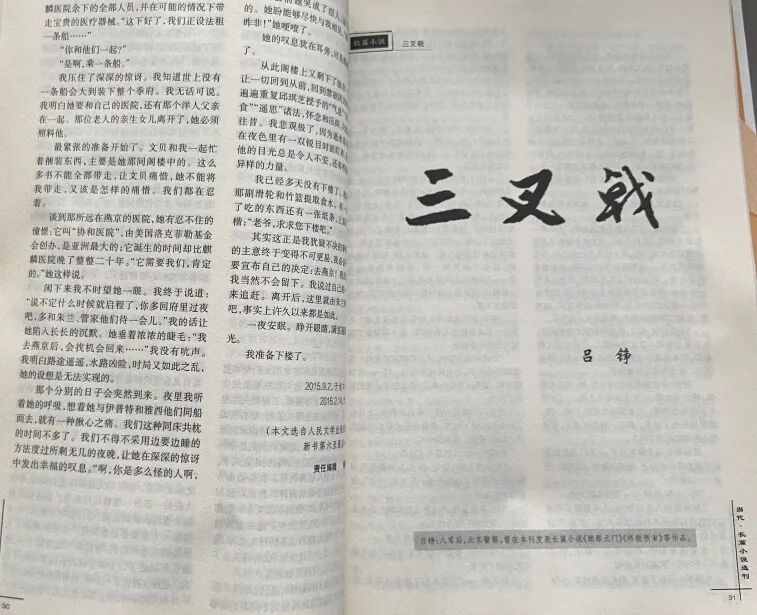 麟医院余下的全部人员，并在可能的情况下带
走宝贵的医疗器械。“这下好了，我们正设法租
一条船……”
“你和他们一起？”
“是啊，乘一条船。”
我压住了深深的惊讶。我知道世上没有
一条船会大到装下整个季府。我无话可说。
我明白她要和自己的医院，还有那个洋人父亲
在一起。那位老人的亲生女儿离开了，她必须
照料他。
最紧张的准备开始了。文贝和我一起忙
着捆装东西，主要是她那间阁楼中的。这么
多书不能全部带走，让文贝痛惜，她不能将
我带走，又该是怎样的痛惜。我们都在忍
着。
谈到那所远在燕京的医院，她有忍不住的
憧憬：它叫“协和医院”，由美国洛克菲勒基金
会创办，是亚洲最大的；它诞生的时间却比麒
麟医院晚了整整二十年。“它需要我们，肯定
的。”她这样说。
闲下来我不时望她一眼。我终于说道：
“说不定什么时候就启程了，你多回府里过夜
吧，多和朱兰、管家他们待一会儿。”我的话让
她陷入长长的沉默。她垂着浓浓的睫毛：“我
去燕京后，会找机会回来……”我没有吭声。
我明白路途遥遥，水路凶险，时局又如此之乱，
她的设想是无法实现的。
那个分别的日子会突然到来。夜里我听
着她的呼吸，想着她与伊普特和雅西他们同船
而去，就有一种揪心之痛。我们这种同床共枕
的时间不多了。我们不得不采用边要边睡的
方法度过所剩无几的夜晚，让她在深深的惊讶
中发出幸福的叹息。“啊，你是多么怪的人啊，
90
的。她盼能够尽快与我相
昨非！”她哽噎了。
她的叹息犹在耳旁，
了。
从此阁楼上又剩下了
让一切回到从前，回到禁
遍遍重复邱琪芝授予的“气息”
食”“遥思”诸法，怀念和
往昔。我悲观极了，因为
在夜色里有一双锐目时而盯
他的目光总是令人不安，还
异样的力量。
我已经多天没有下楼了。
那副滑轮和竹篮提取食水。
了吃的东西还有一张纸条，上
楷：“老爷，求求您下楼吧。”
其实这正是我犹疑不决的
的主意终于变得不可更易，我
要宣布自己的决定：去燕京！
我当然不会留下。我说过自己
来追赶。离开后，这里就由朱兰
吧，事实上许久以来都是如此。
一夜安眠。睁开眼睛，满室
光。
我准备下楼了。
2015.9.2，于
2016.2.14，
（本文选自人民文学出版
新书第六至第
责任编辑
长篇小说
三叉戟
三叉戟
吕铮
吕铮：八零后，北京警察，曾在本刊发表长篇小说《赎罪无门》《终极预审》等作品。
当代·长篇小说选刊
91